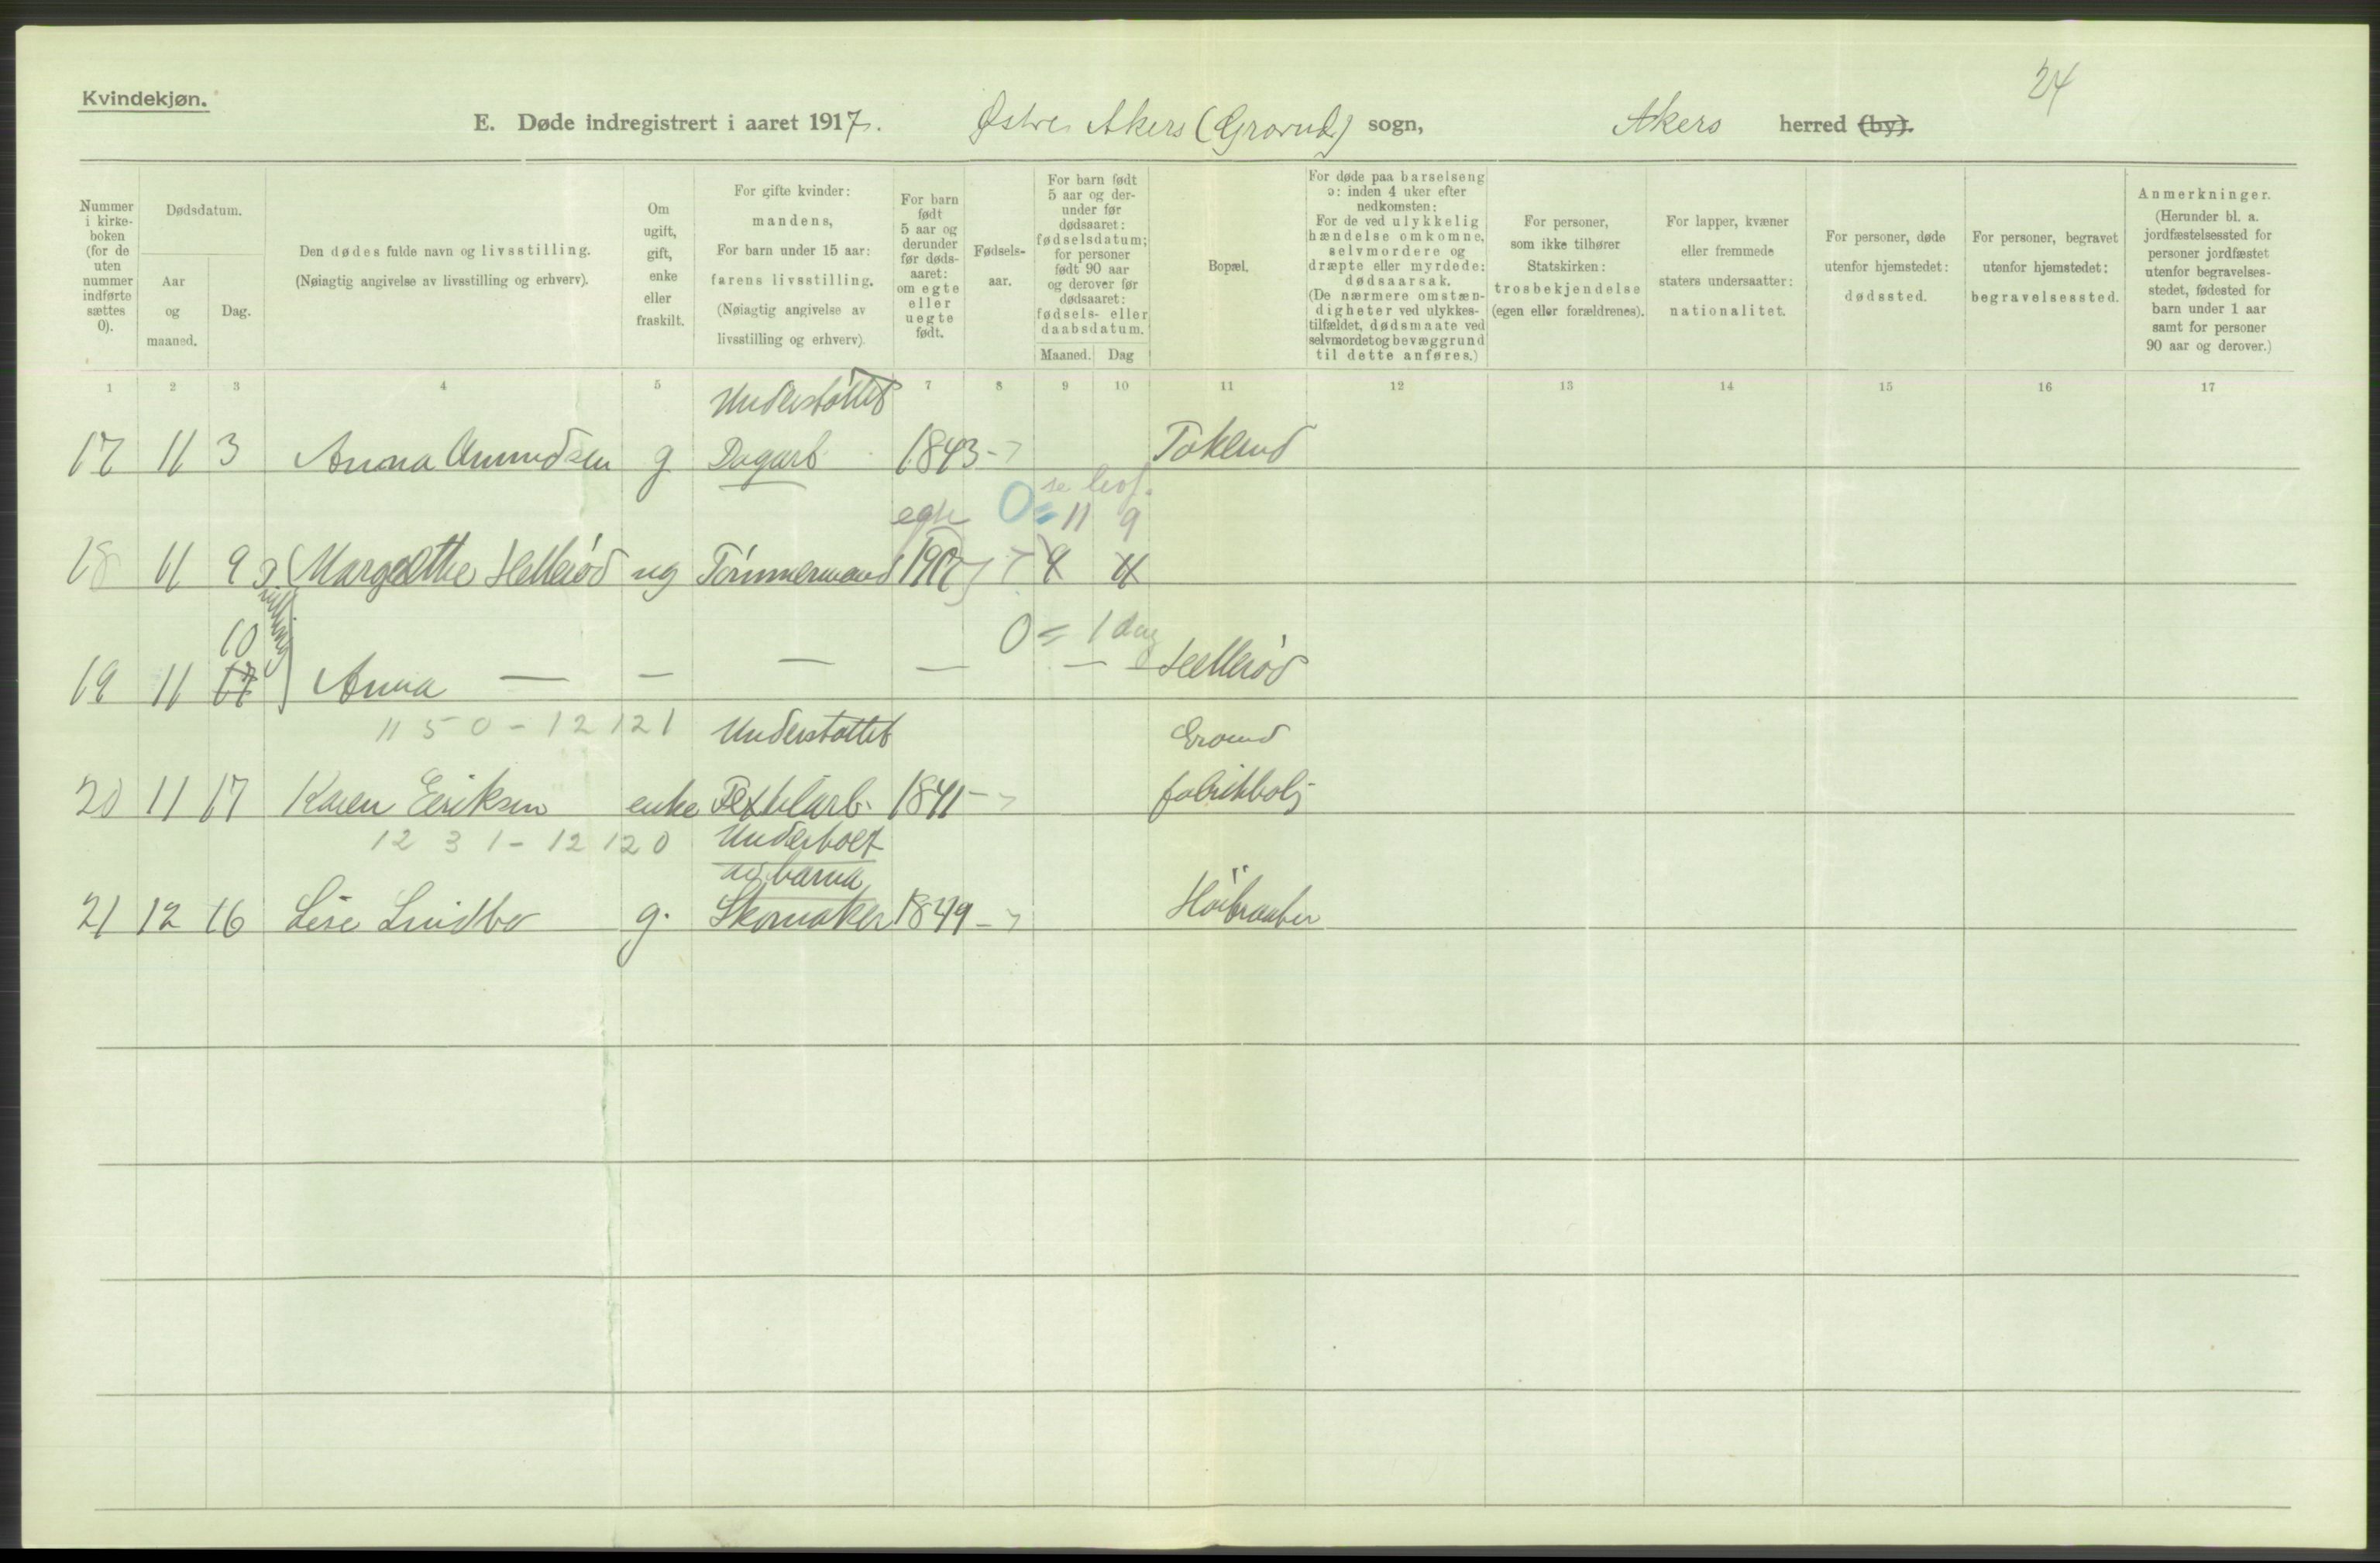 Kvindekjøn.
24
E. Døde indregistrert i aaret 1917. Østre Akers (Grorud) sogn, Akers herred (by).
Nummer i kirke-boken (for de uten nummer indførte sættes 0).
Dødsdatum.
Aar og maaned.
Dag.
Den dødes fulde navn og livsstilling.
(Nøiagtig angivelse av livsstilling og erhverv).
Om ugift, gift, enke eller fraskilt.
For gifte kvinder: mandens,
For barn under 15 aar: farens livsstilling.
(Nøiagtig angivelse av livsstilling og erhverv)
For barn født 5 aar og derunder før døds-aaret: om egte eller uegte født.
Fødsels-aar.
For barn født 5 aar og der-under før dødsaaret: fødselsdatum; for personer født 90 aar og derover før dødsaaret: fødsels- eller daabsdatum.
Maaned. Dag
Bopæl.
For døde paa barselseng ɔ: inden 4 uker efter nedkomsten:
For de ved ulykkelig hændelse omkomne, selvmordere og dræpte eller myrdede: dødsaarsak.
(De nærmere omstæn-digheter ved ulykkes-tilfældet, dødsmaate ved selvmordet og bevæggrund til dette anføres.)
For personer, som ikke tilhører Statskirken: trosbekjendelse (egen eller forældrenes).
For lapper, kvæner eller fremmede staters undersaatter: nationalitet.
For personer, døde utenfor hjemstedet: dødssted.
For personer, begravet utenfor hjemstedet: begravelsessted.
Anmerkninger.
(Herunder bl. a. jordfæstelsessted for personer jordfæstet utenfor begravelses-stedet, fødested for barn under 1 aar samt for personer 90 aar og derover.)
1 2 3 4 5 6 7 8 9 10 11 12 13 14 15 16 17
Understøttet
17 11 3 Anna Amundsen g Dagarb 1843 -
egte 0 = 11 9
18 11 9 Margrethe Hellerød ug Tømmermand 1917 4 11
10 0 = 1 dag
19 11 17 Anna — — — — — Hellerød
11 5 0 - 12 12 1 Understøttet Grorud
20 11 17 Karen Eriksen enke Textilarb. 1841 - fabrikbolj
12 3 1 - 12 12 0 Underholt
av barna
21 12 16 Lise Lindbo g. Skomaker 1849 - Høibraaten